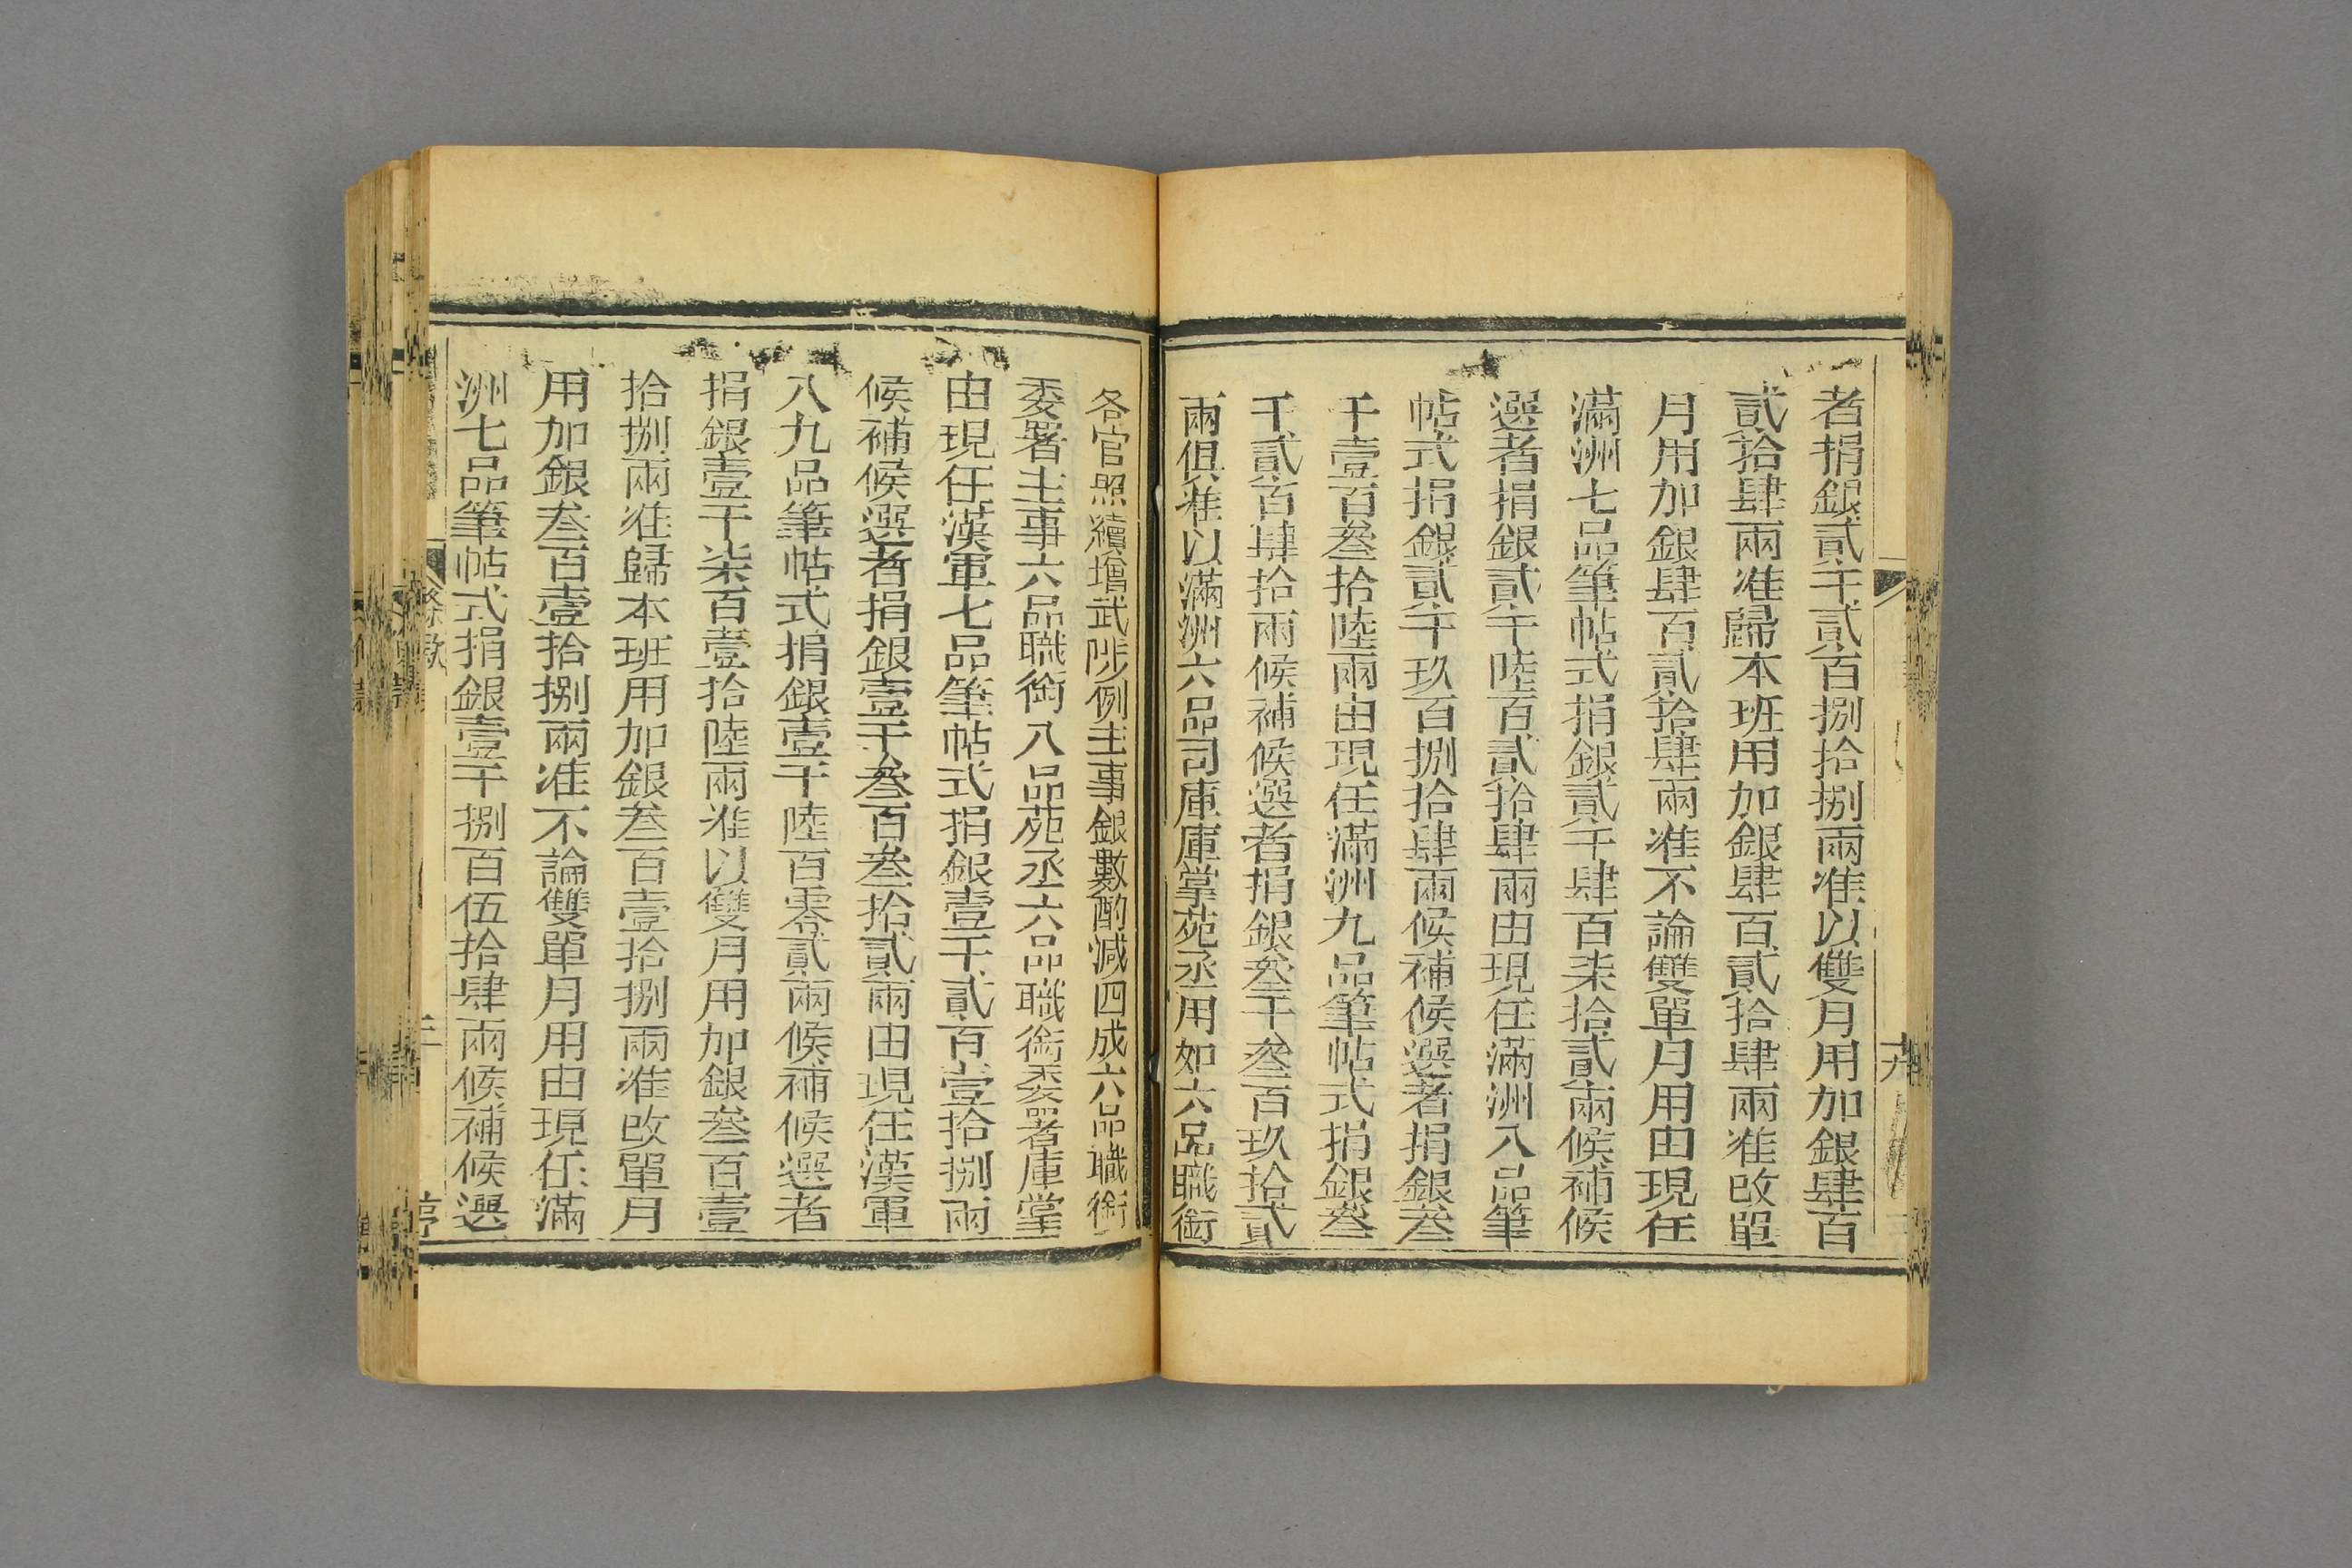 者捐銀貳千貳百捌拾捌兩准以雙月用加銀肆百
貳拾肆兩准歸本班用加銀肆百貳拾肆兩准改單
月用加銀肆百貳拾肆兩准不論雙單月用由現任
滿洲七品筆帖式捐銀貳千肆百柒拾貳兩候補候
選者捐銀貳千陸百貳拾肆兩由現任滿洲八品筆
帖式捐銀貳千玖百捌拾肆兩候補候選者捐銀叁
千壹百叁拾陸兩由現任滿洲九品筆帖式捐銀叁
千貳百肆拾兩候補候選者捐銀叁千叁百玖拾貳
兩俱准以滿洲六品司庫庫掌苑丞用如六品職銜
各官照續增武陟例主事銀數酌減四成六品職銜
委署主事六品職銜八品苑丞六品職銜委署庫掌
由現任漢軍七品筆帖式捐銀壹千貳百壹拾捌兩
候補候選者捐銀壹千叁百叁拾貳兩由現任漢軍
八九品筆帖式捐銀壹千陸百零貳兩候補候選者
捐銀壹千柒百壹拾陸兩准以雙月用加銀叁百壹
拾捌兩准歸本班用加銀叁百壹拾捌兩准改單月
用加銀叁百壹拾捌兩准不論雙單月用由現任滿
洲七品筆帖式捐銀壹千捌百伍拾肆兩候補候選
條款